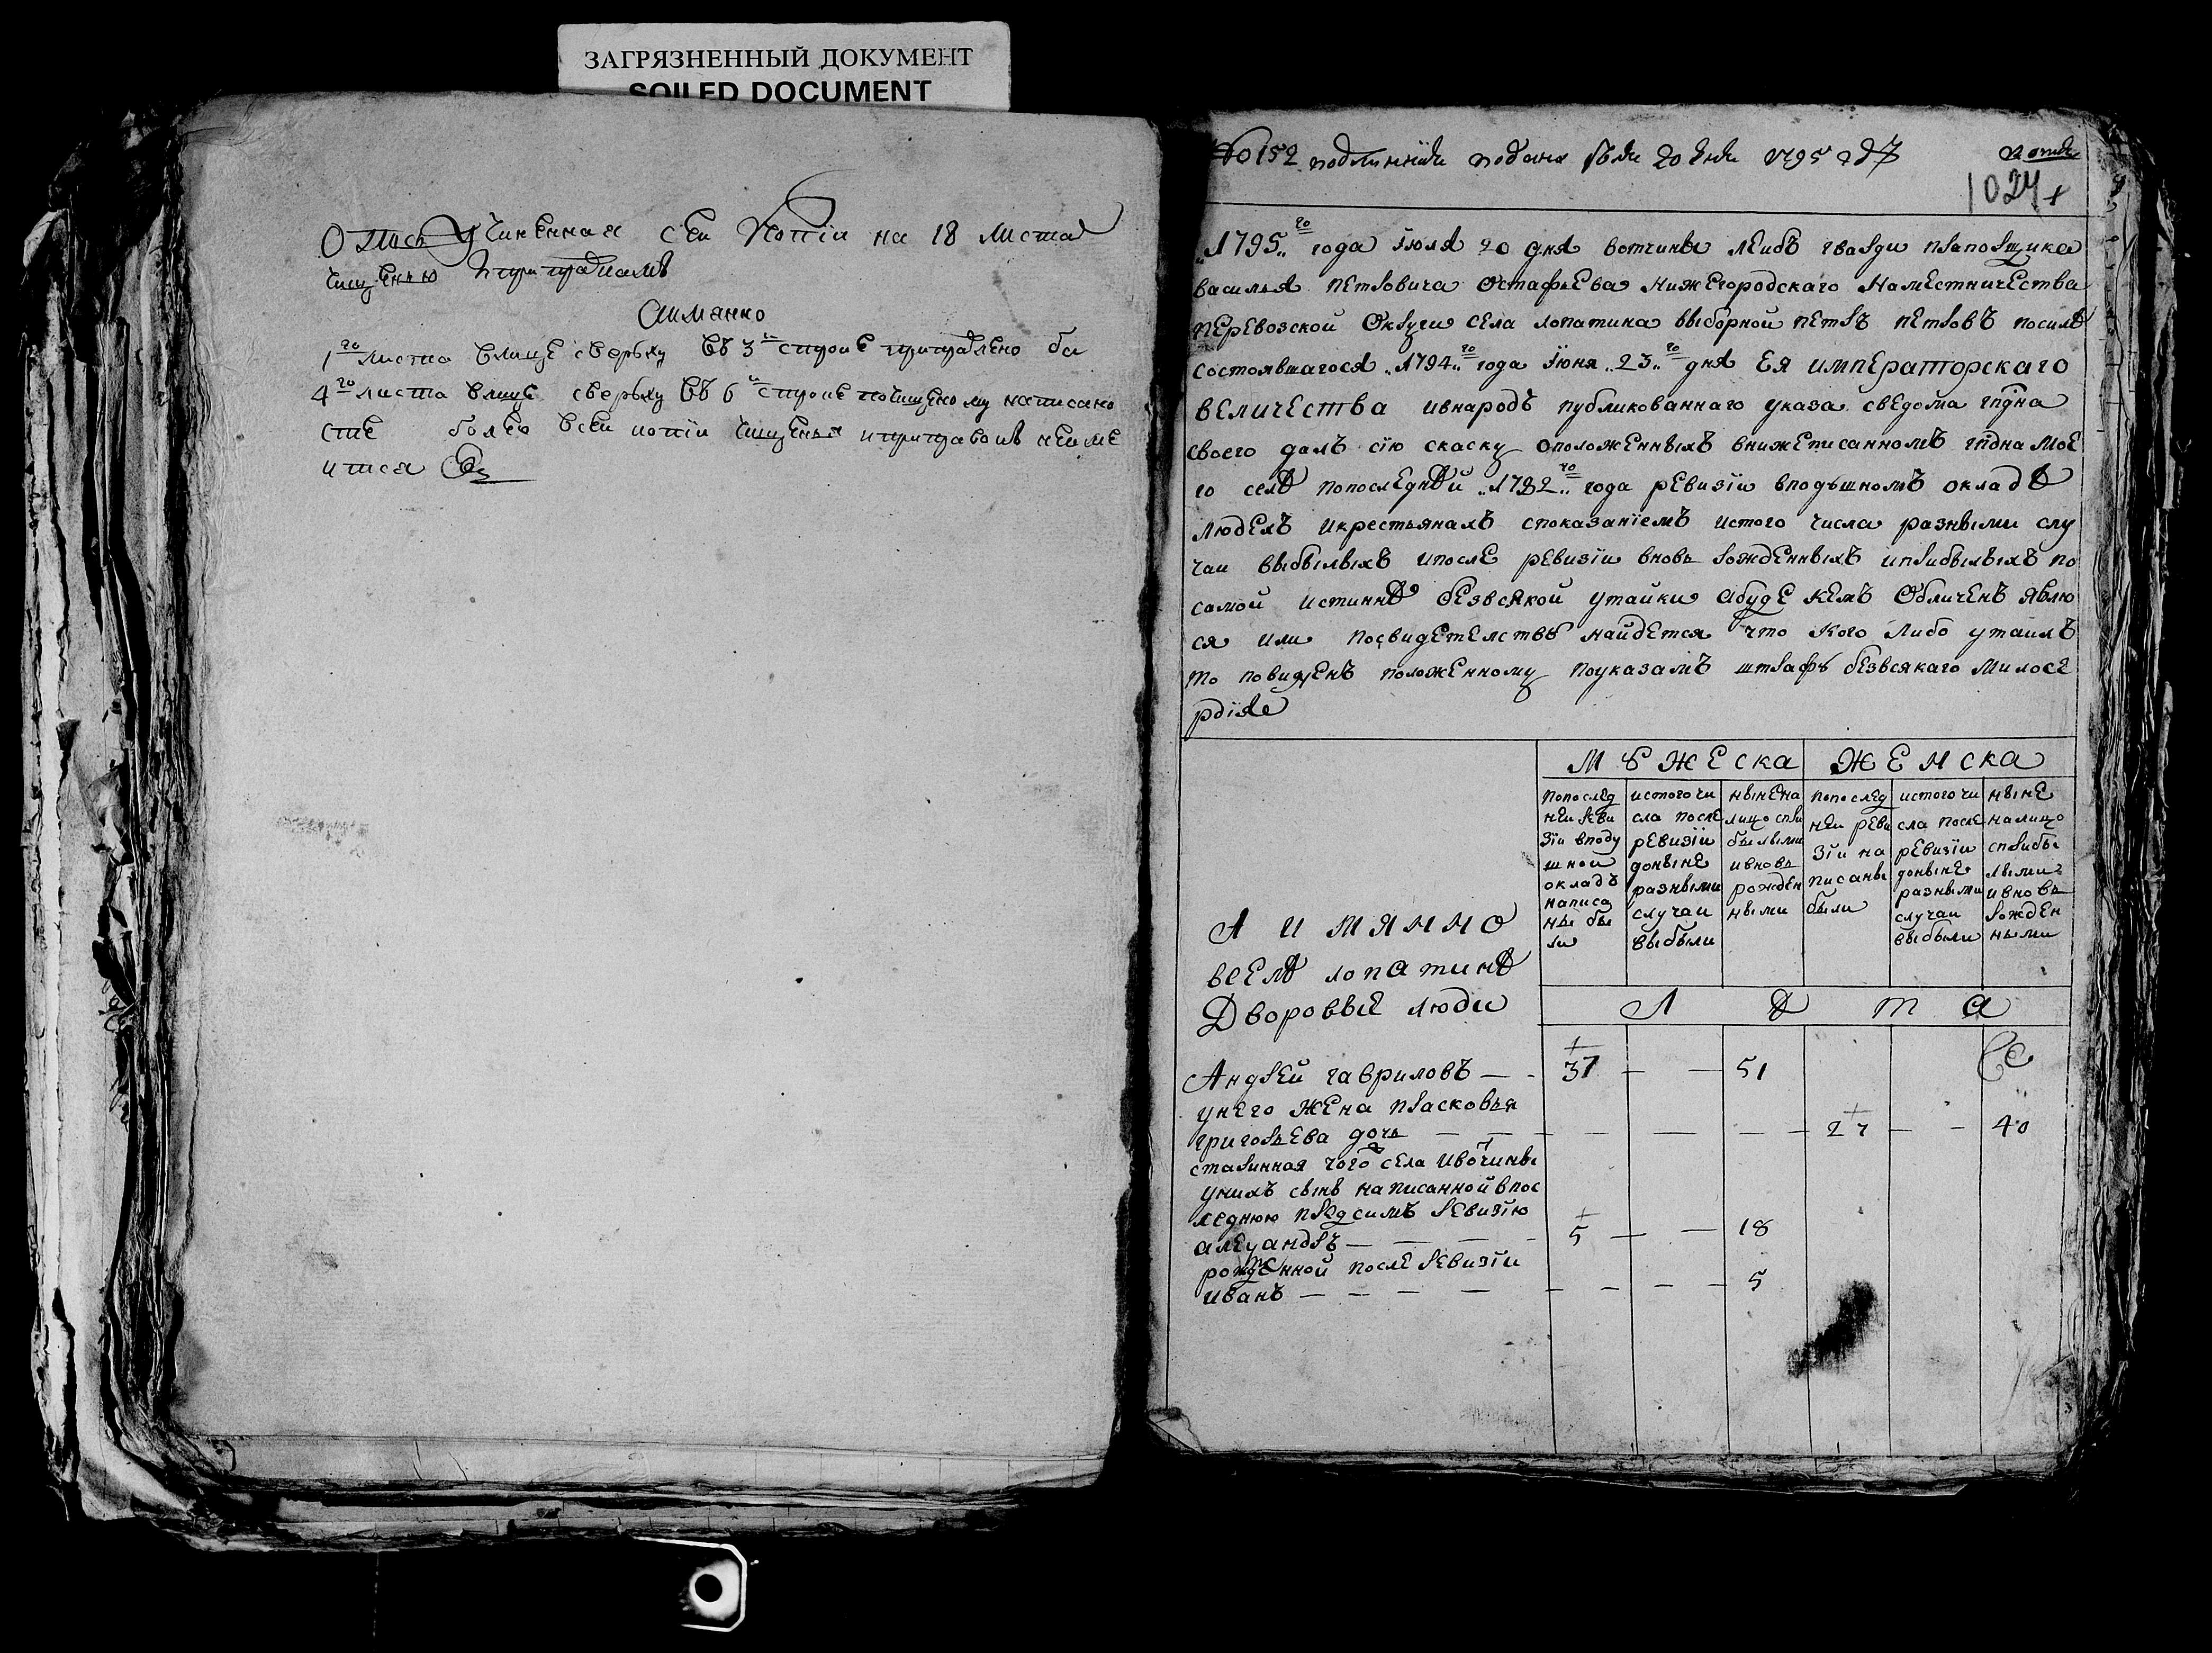 ЗАГРЯЗНЕННЫЙ ДОКУМЕНТ
SOILED DOCUMENT
Опись учиненная сей копїи на 18 листах
чищенью
Аимянно
1го листа влице сверьху въ 3й строке приправлено
4го листа влице сверьху въ 6й строке почищеному написано
более всей копїи чищенья иприправокъ неиме
ится
№ 152 подлинная подана 20 1795
1024
1795го года Їюля 20 дня вотчины лейбъ гварди прапорщика
василья петровича Остафьева Нижегородскаго Наместничества
перевозской Округи села лопатина выборной петръ петровъ посиле
состоявшагося 1794го года їюня 23го дня Ея императорскаго
величества ивнародъ публикованнаго указа сведома гпдна
своего далъ сїю скаску оположенныхъ внижеписанномъ гпдна мое
го селѣ попоследнѣй 1782го года ревизїи вподушномъ окладѣ
людехъ икрестьянахъ споказанїемъ истого числа разными слу
чаи выбылыхъ ипосле ревизїи вновь рожденныхъ иприбылыхъ по
самой истиннѣ безвсякой утайки абуде кемъ Обличенъ явлю
ся или посвидетелству найдется что кого либо утаилъ
то повиненъ положенному поуказамъ штрафу безвсякаго милосе
рдїя
Мужеска Женска
попослед
ней реви
зїи вподу
шной
окладъ
написа
ны бы
ли
истого чи
сла после
ревизїи
доныне
разными
случаи
выбыли
ныне на
лицо спри
былыми
ивновь
рожден
ными
попослед
ней реви
зїи на
писаны
были
истого чи
сла после
ревизїи
доныне
разными
случаи
выбыли
ныне
налицо
сприбы
лыми
ивновь
рожден
ными
Аимянно
вселѣ лопатинѣ
Дворовые люди
Лѣта
Андрей гавриловъ — 37 — — 51
унего жена прасковья
григорьева дочь — — — — 27 — — 40
старинная того села ивотчины
унихъ сынъ написанной впос
леднюю предсимъ ревизїю
алеѯандръ — — 5 — — 18
рожденной после ревизїи
иванъ — — — — 5